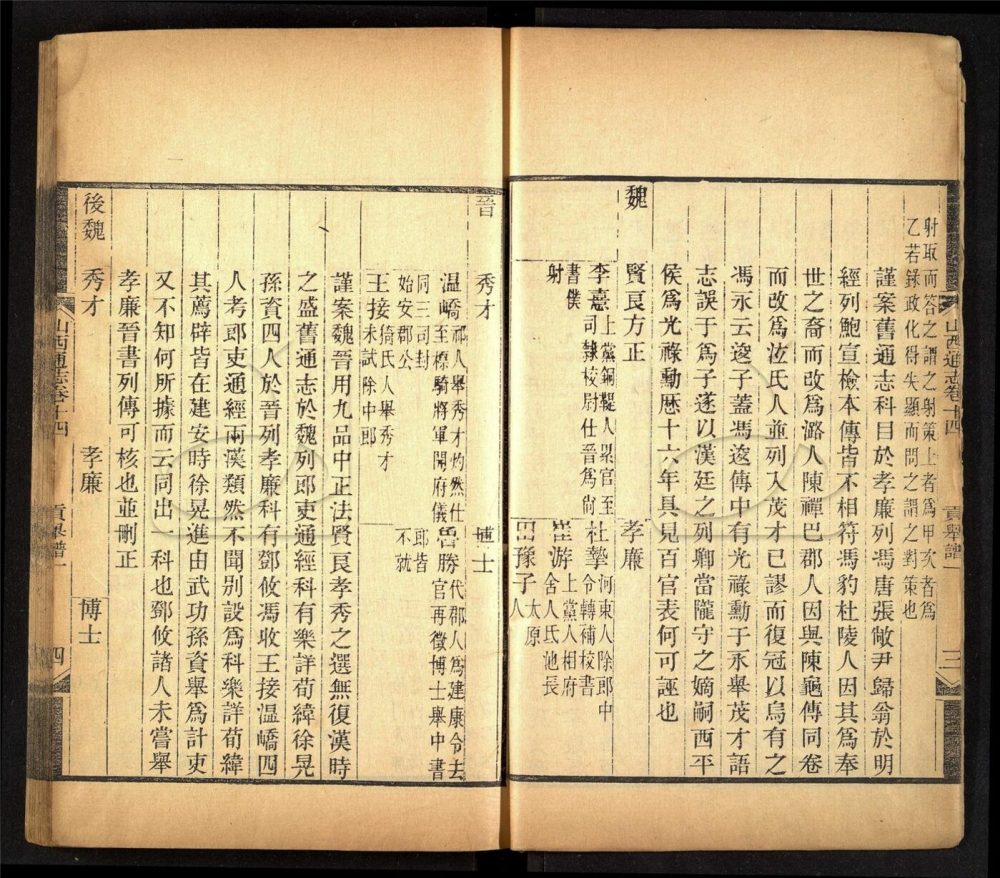 射取而答之謂之射策上者爲甲次者爲
乙若錄政化得失顯而問之謂之對策也
謹案舊通志科目於孝廉列馮唐張敞尹歸翁於明
經列鮑宣檢本傳皆不相符馮豹杜陵人因其爲奉
世之裔而改爲潞人陳禪巴郡人因與陳龜傳同卷
而改爲泫氏人並列入茂才已謬而復冠以烏有之
馮永云逡子蓋馮逡傳中有光祿勳于永舉茂才語
志誤于爲子遂以漢廷之列卿當隴守之嫡嗣西平
侯爲光祿勳歷十六年具見百官表何可誣也
魏
賢良方正
孝廉
李憙上黨銅鞮人累官至
司隷校尉仕晉爲尙
書僕
射
杜摯河東人除郎中
令轉補校書
崔游上黨人相府
舍人氏池長
田豫子太原
人
山西通志卷十四
貢舉譜一
三
晉
秀才
博士
温嶠祁人舉秀才灼然仕
至驃騎將軍開府儀
同三司封
始安郡公
王接猗氏人舉秀才
未試除中郎
魯勝代郡人爲建康令去
官再徵博士舉中書
郎皆
不就
謹案魏晉用九品中正法賢良孝秀之選無復漢時
之盛舊通志於魏列郎吏通經科有樂詳荀緯徐晃
孫資四人於晉列孝廉科有鄧攸馮收王接温嶠四
人考郎吏通經兩漢類然不聞別設爲科樂詳荀緯
其薦辟皆在建安時徐晃進由武功孫資舉爲計吏
又不知何所據而云同出一科也鄧攸諸人未嘗舉
孝廉晉書列傳可核也並刪正
後魏
秀才
孝廉
博士
山西通志卷十四
貢舉譜一
四